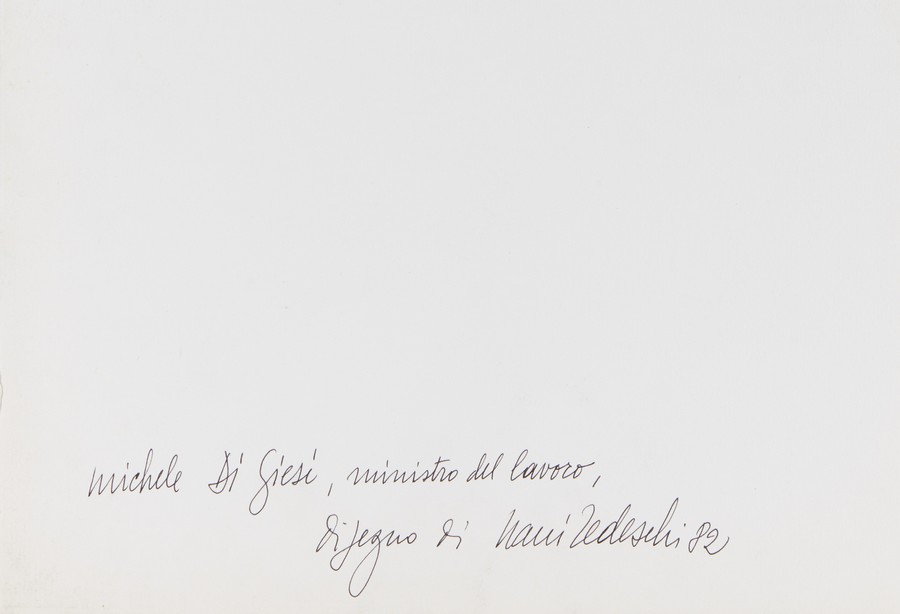 michele Di Giesi, ministro del lavoro,
disegno di Nani Tedeschi 82